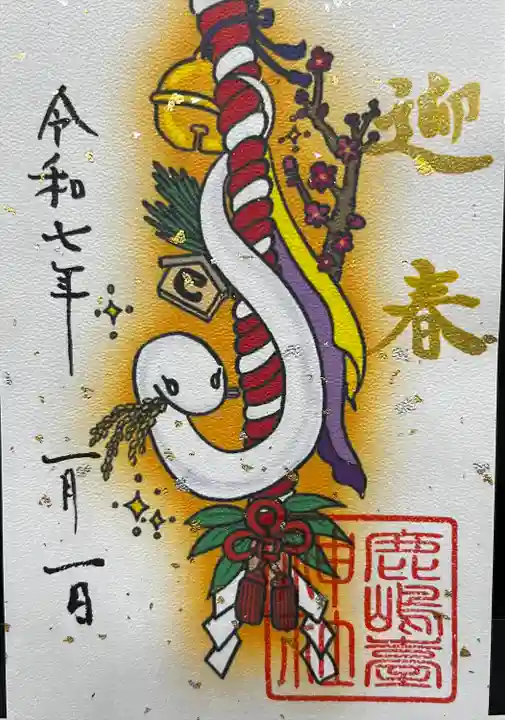 迎春
令和七年 一月一日
鹿嶋臺
神社